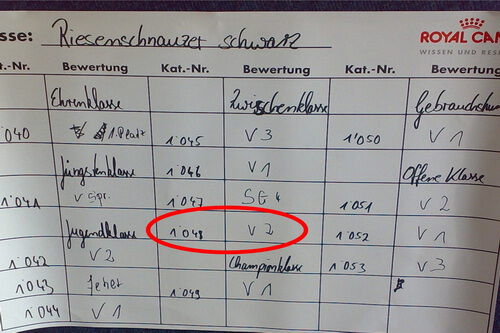 sse: Riesenschnauzer schwarz
ROYAL CAN
WISSEN UND RES
Nr. Bewertung Kat.-Nr. Bewertung Kat.-Nr. Bewertung
Ehrenklasse Zwischenklasse Gebrauchshun
1'040 1.Platz 1'045 V3 1'050 V1
Jüngstenklasse 1'046 V1 Offene Klasse
1'041 V Spr. 1'047 SG 4 1'051 V2
Jugendklasse 1'048 V2 1'052 V1
1'042 V2 Championklasse 1'053 V3
1'043 fehlt 1'049 V1
1'044 V1